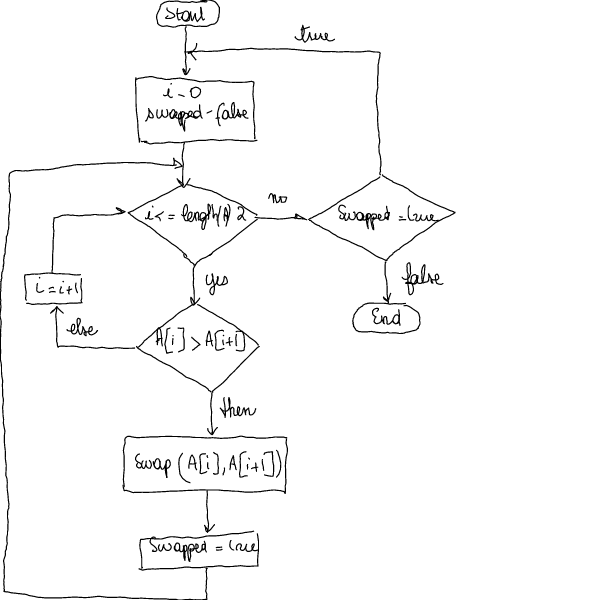 Start
true
i-0
swapped-false
i<=length(A) 2
no
Swapped = true
yes
false
i=i+1
End
else
A[i] > A[i+1]
then
Swap (A[i], A[i+1])
Swapped = true